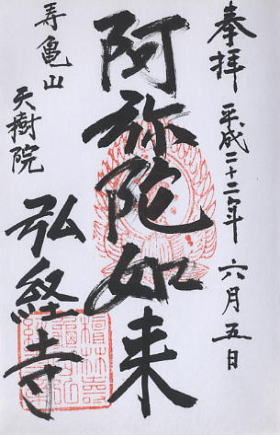 奉拝 平成二十二年 六月五日
阿弥陀如来
寿亀山 天樹院
弘経寺